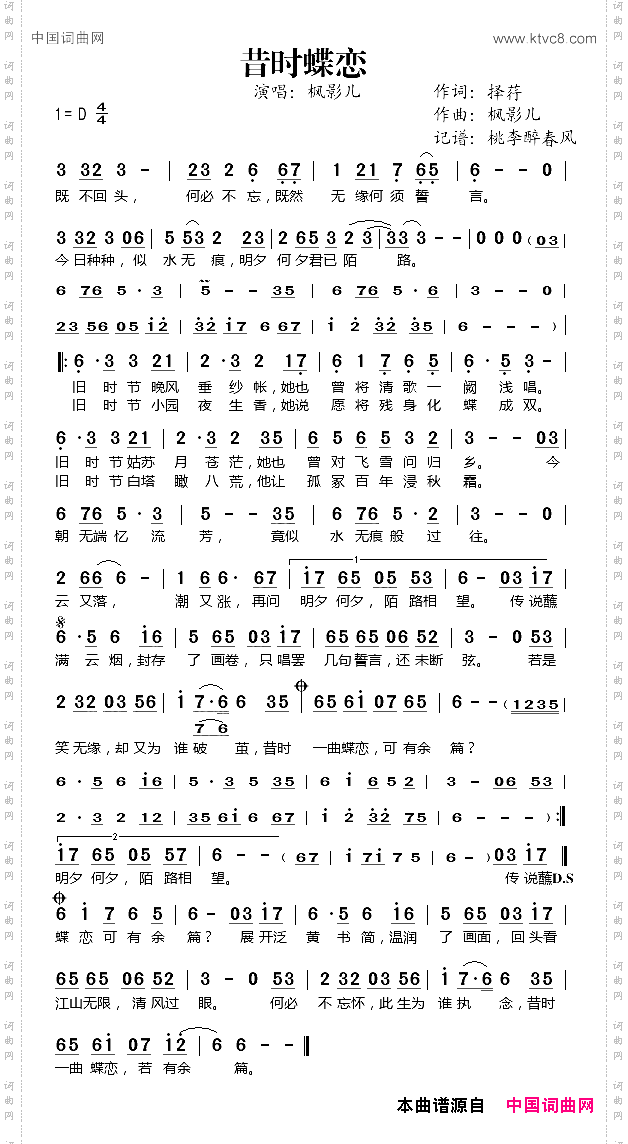 中国词曲网
www.ktvc8.com
昔时蝶恋
演唱：枫影儿
作词：择荇
1=D 4/4
作曲：枫影儿
记谱：桃李醉春风
3 32 3 - | 23 2 6 67 | 1 21 7 65 | 6 - - 0 |
既 不回 头， 何必 不 忘，既然 无 缘何 须 誓 言。
3 32 3 06 | 5 53 2 23 | 2 65 3 2 3 | 33 3 - - | 0 0 0 (03 |
今 日种 种，似 水 无 痕，明夕 何 夕君 已 陌 路。
6 76 5 · 3 | 5 - - 35 | 6 76 5 · 6 | 3 - - 0 |
23 56 05 i2 | 32 i7 6 6 | i 2 32 35 | 6 - - - ) |
‖: 6 · 3 3 21 | 2 · 3 2 17 | 6 1 7 6 5 | 6 · 5 3 - |
旧 时 节 晚风 垂 纱 帐，她也 曾 将 清 歌 一 阕 浅 唱。
旧 时 节 小园 夜 生 香，她说 愿 将 残 身 化 蝶 成 双。
6 · 3 3 21 | 2 · 3 2 35 | 6 5 6 5 3 2 | 3 - - 03 |
旧 时 节 姑苏 月 苍 茫，她也 曾 对 飞 雪 问 归 乡。 今
旧 时 节 白塔 瞰 八 荒，他让 孤 冢 百 年 浸 秋 霜。
6 76 5 · 3 | 5 - - 35 | 6 76 5 · 2 | 3 - - 0 |
朝 无端 忆 流 芳， 竟似 水 无痕 般 过 往。
2 66 6 - | 1 66 · 67 | i7 65 05 35 | 6 - 03 i7 |
1
云 又落， 潮 又涨，再问 明夕 何夕，陌 路相 望。 传 说蘸
6 · 5 6 i6 | 5 65 03 i7 | 65 65 06 52 | 3 - 0 53 |
满 云 烟，封存 了 画卷，只 唱罢 几句 誓言，还 未断 弦。 若是
2 32 03 56 | i 7·6 6 35 | 65 6i 07 65 | 6 - - (1235 |
7 6
笑 无缘，却 又为 谁 破 茧，昔时 一曲 蝶恋，可 有余 篇？
6 · 5 6 i6 | 5 · 3 5 35 | 6 i 65 2 | 3 - 06 53 |
2 · 3 2 12 | 35 6i 6 67 | i 2 32 75 | 6 - - ) :‖
2
i7 65 05 57 | 6 - - (67 | i 7i 7 5 | 6 - ) 03 i7 ‖
明夕 何夕，陌 路相 望。 传 说蘸D.S
6 i 7 6 5 | 6 - 03 i7 | 6 · 5 6 i6 | 5 65 03 i7 |
蝶 恋 可 有 余 篇？ 展 开泛 黄 书 简，温润 了 画面，回 头看
65 65 06 52 | 3 - 0 53 | 2 32 03 56 | i 7·6 6 35 |
江山 无限，清 风过 眼。 何必 不 忘怀，此 生为 谁 执 念，昔时
65 6i 07 i2 | 2 6 6 - - ‖
一曲 蝶恋，若 有余 篇。
本曲谱源自 中国词曲网